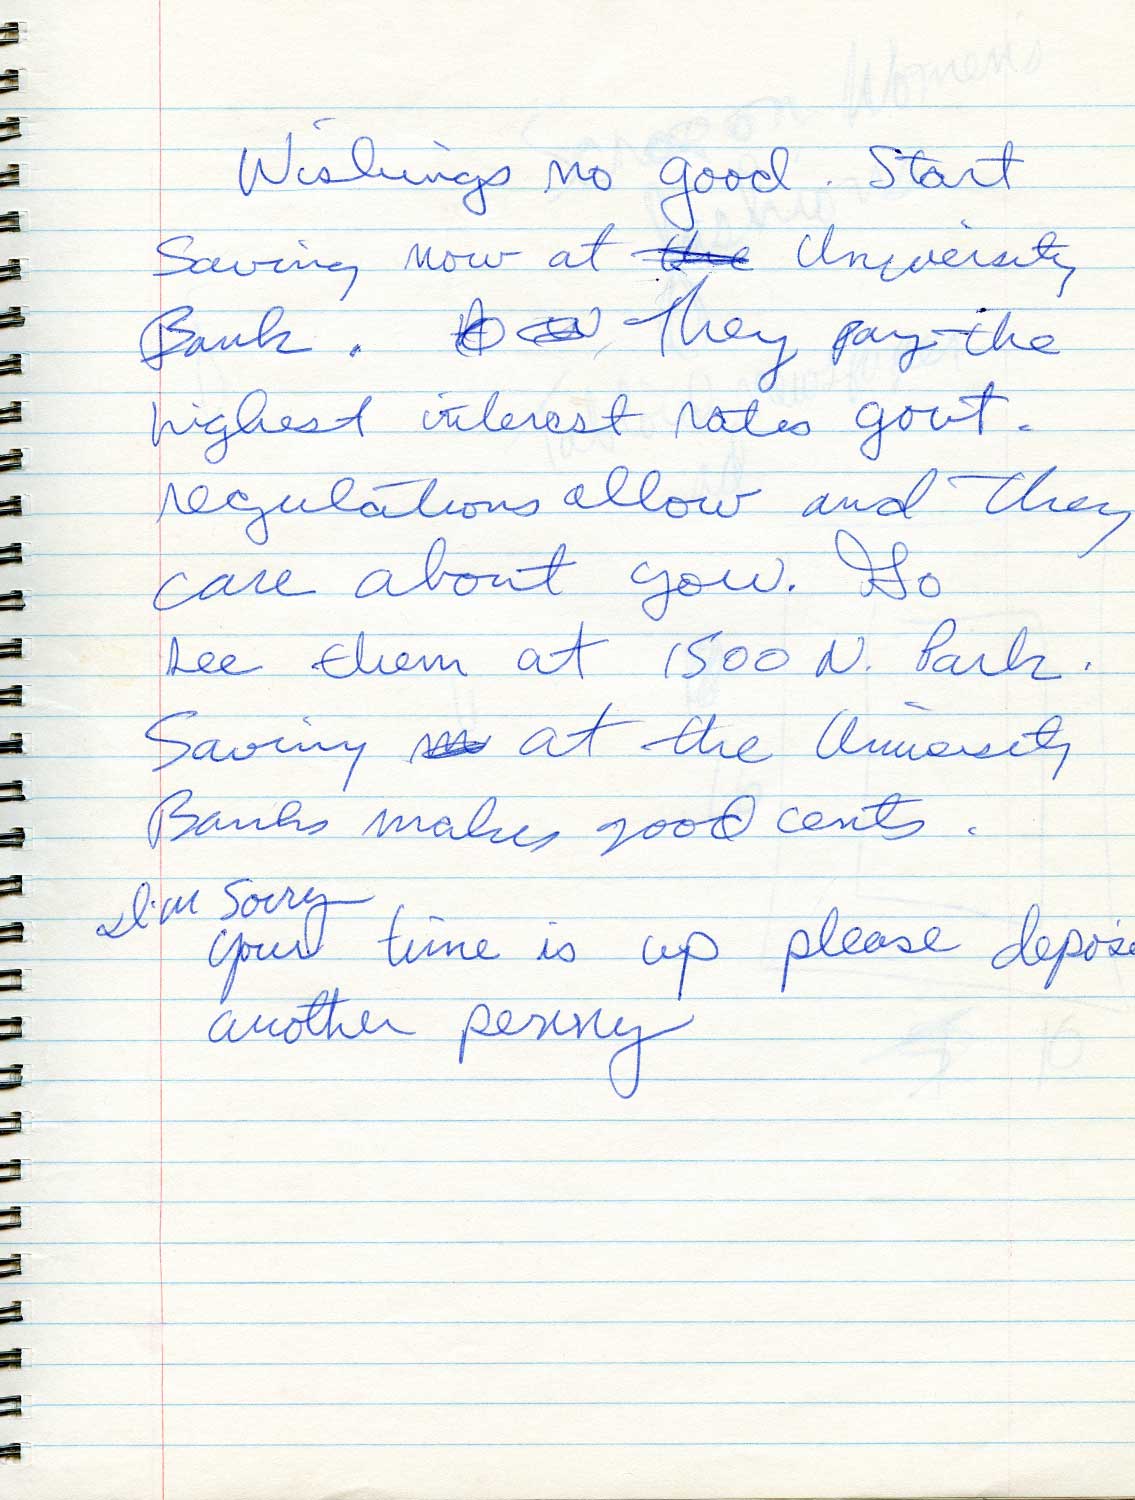 Wishings no good. Start
Saving now at the University
Bank. They pay the
highest interest rates govt.
regulations allow and they
care about you. Go
see them at 1500 N. Park.
Saving at the University
Banks makes good cents.
I'm Sorry
your time is up please depose
another penny